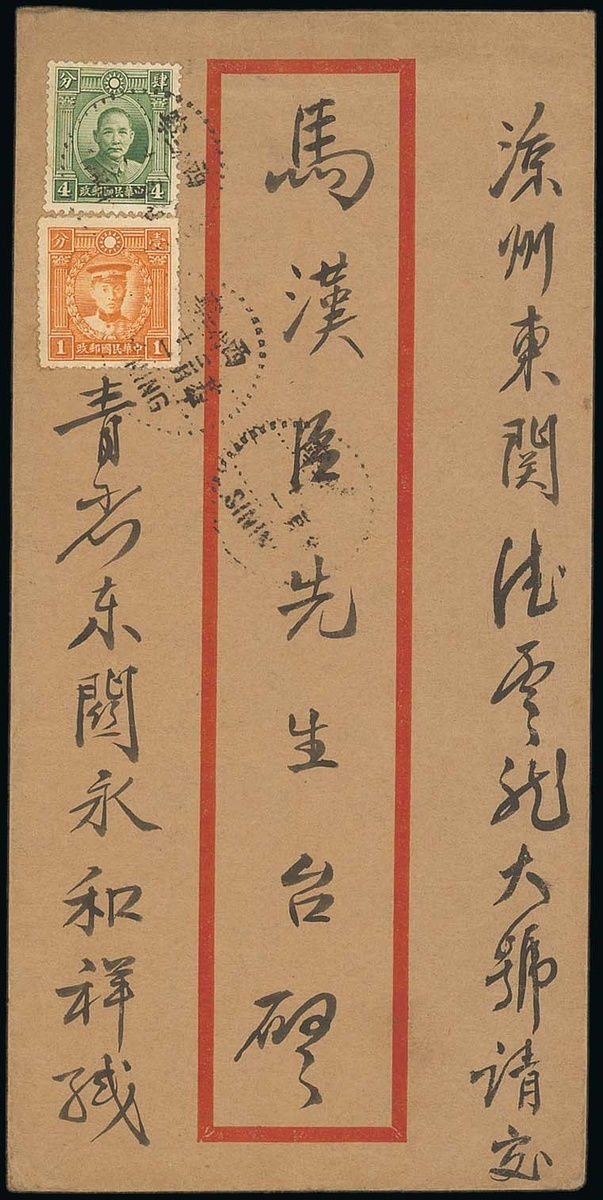 涼州東関德雲龍大號請交
馬漢臣先生台啓
青省东関永和祥緘
分 肆
4 中華民國郵政 4
分 壹
1 中華民國郵政 1
西寧
SINING
SINING